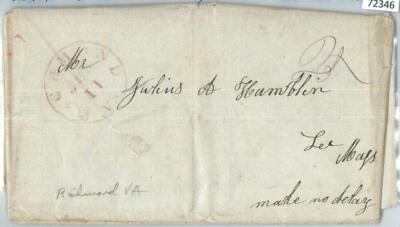 72346
RICHMOND
11
Mr
Julius A Hamblin
Lee
Mass
make no delay
Richmond VA